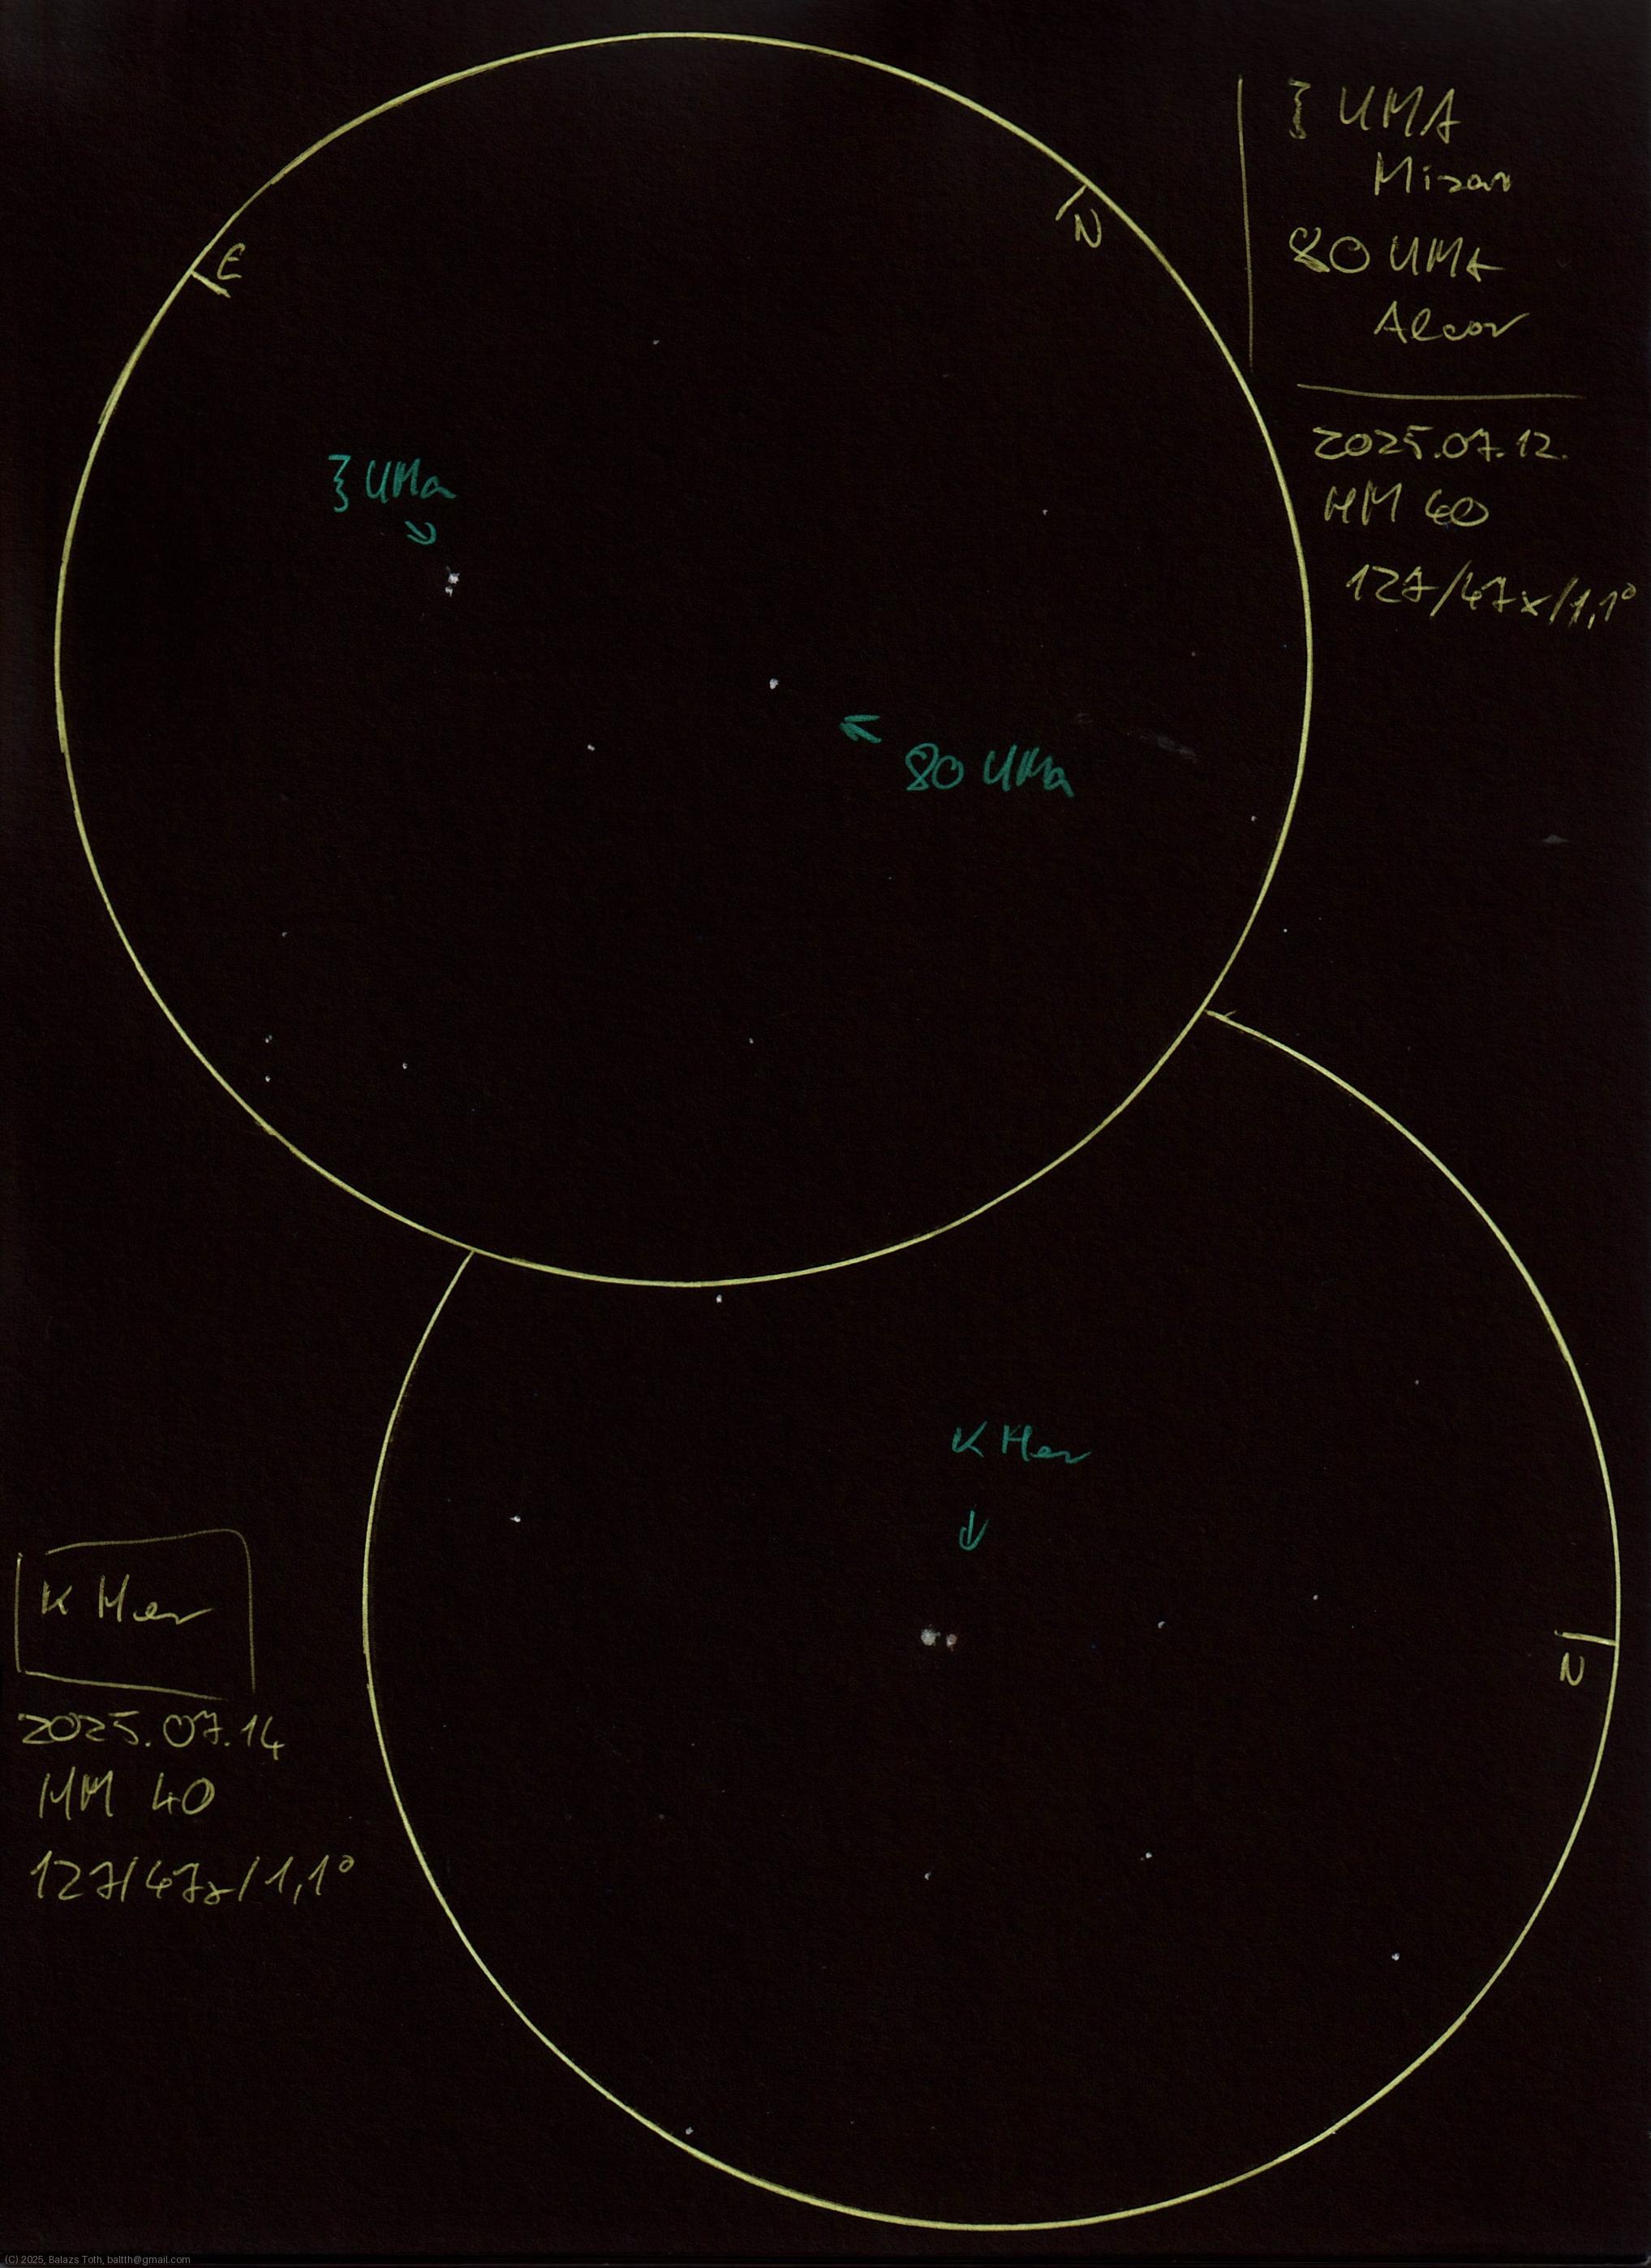 ξ UMA
Mizar
80 UMa
Alcor
2025.07.12.
HM 40
127/47x/1,1°
E
N
ξ UMa
80 UMa
κ Her
N
κ Her
2025.07.14
HM 40
127/47x/1,1°
(C) 2025, Balazs Toth, baltth@gmail.com